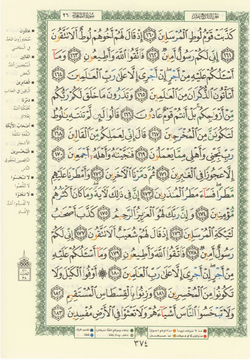 كَذَّبَتْ قَوْمُ لُوطٍ ٱلْمُرْسَلِينَ ١٦٠ إِذْ قَالَ لَهُمْ أَخُوهُمْ لُوطٌ أَلَا تَتَّقُونَ
١٦١ إِنِّى لَكُمْ رَسُولٌ أَمِينٌ ١٦٢ فَٱتَّقُوا۟ ٱللَّهَ وَأَطِيعُونِ ١٦٣ وَمَآ
أَسْـَٔلُكُمْ عَلَيْهِ مِنْ أَجْرٍ إِنْ أَجْرِىَ إِلَّا عَلَىٰ رَبِّ ٱلْعَـٰلَمِينَ ١٦٤
أَتَأْتُونَ ٱلذُّكْرَانَ مِنَ ٱلْعَـٰلَمِينَ ١٦٥ وَتَذَرُونَ مَا خَلَقَ لَكُمْ رَبُّكُم
مِّنْ أَزْوَٰجِكُم بَلْ أَنتُمْ قَوْمٌ عَادُونَ ١٦٦ قَالُوا۟ لَئِن لَّمْ تَنتَهِ يَـٰلُوطُ
لَتَكُونَنَّ مِنَ ٱلْمُخْرَجِينَ ١٦٧ قَالَ إِنِّى لِعَمَلِكُم مِّنَ ٱلْقَالِينَ ١٦٨
رَبِّ نَجِّنِى وَأَهْلِى مِمَّا يَعْمَلُونَ ١٦٩ فَنَجَّيْنَـٰهُ وَأَهْلَهُۥٓ أَجْمَعِينَ ١٧٠
إِلَّا عَجُوزًا فِى ٱلْغَـٰبِرِينَ ١٧١ ثُمَّ دَمَّرْنَا ٱلْـَٔاخَرِينَ ١٧٢ وَأَمْطَرْنَا عَلَيْهِم
مَّطَرًا فَسَآءَ مَطَرُ ٱلْمُنذَرِينَ ١٧٣ إِنَّ فِى ذَٰلِكَ لَـَٔايَةً وَمَا كَانَ أَكْثَرُهُم
مُّؤْمِنِينَ ١٧٤ وَإِنَّ رَبَّكَ لَهُوَ ٱلْعَزِيزُ ٱلرَّحِيمُ ١٧٥ كَذَّبَ أَصْحَـٰبُ
لْـَٔيْكَةِ ٱلْمُرْسَلِينَ ١٧٦ إِذْ قَالَ لَهُمْ شُعَيْبٌ أَلَا تَتَّقُونَ ١٧٧ إِنِّى لَكُمْ
رَسُولٌ أَمِينٌ ١٧٨ فَٱتَّقُوا۟ ٱللَّهَ وَأَطِيعُونِ ١٧٩ وَمَآ أَسْـَٔلُكُمْ عَلَيْهِ
مِنْ أَجْرٍ إِنْ أَجْرِىَ إِلَّا عَلَىٰ رَبِّ ٱلْعَـٰلَمِينَ ١٨٠ أَوْفُوا۟ ٱلْكَيْلَ وَلَا
تَكُونُوا۟ مِنَ ٱلْمُخْسِرِينَ ١٨١ وَزِنُوا۟ بِٱلْقِسْطَاسِ ٱلْمُسْتَقِيمِ ١٨٢
وَلَا تَبْخَسُوا۟ ٱلنَّاسَ أَشْيَآءَهُمْ وَلَا تَعْثَوْا۟ فِى ٱلْأَرْضِ مُفْسِدِينَ ١٨٣
٣٧٤